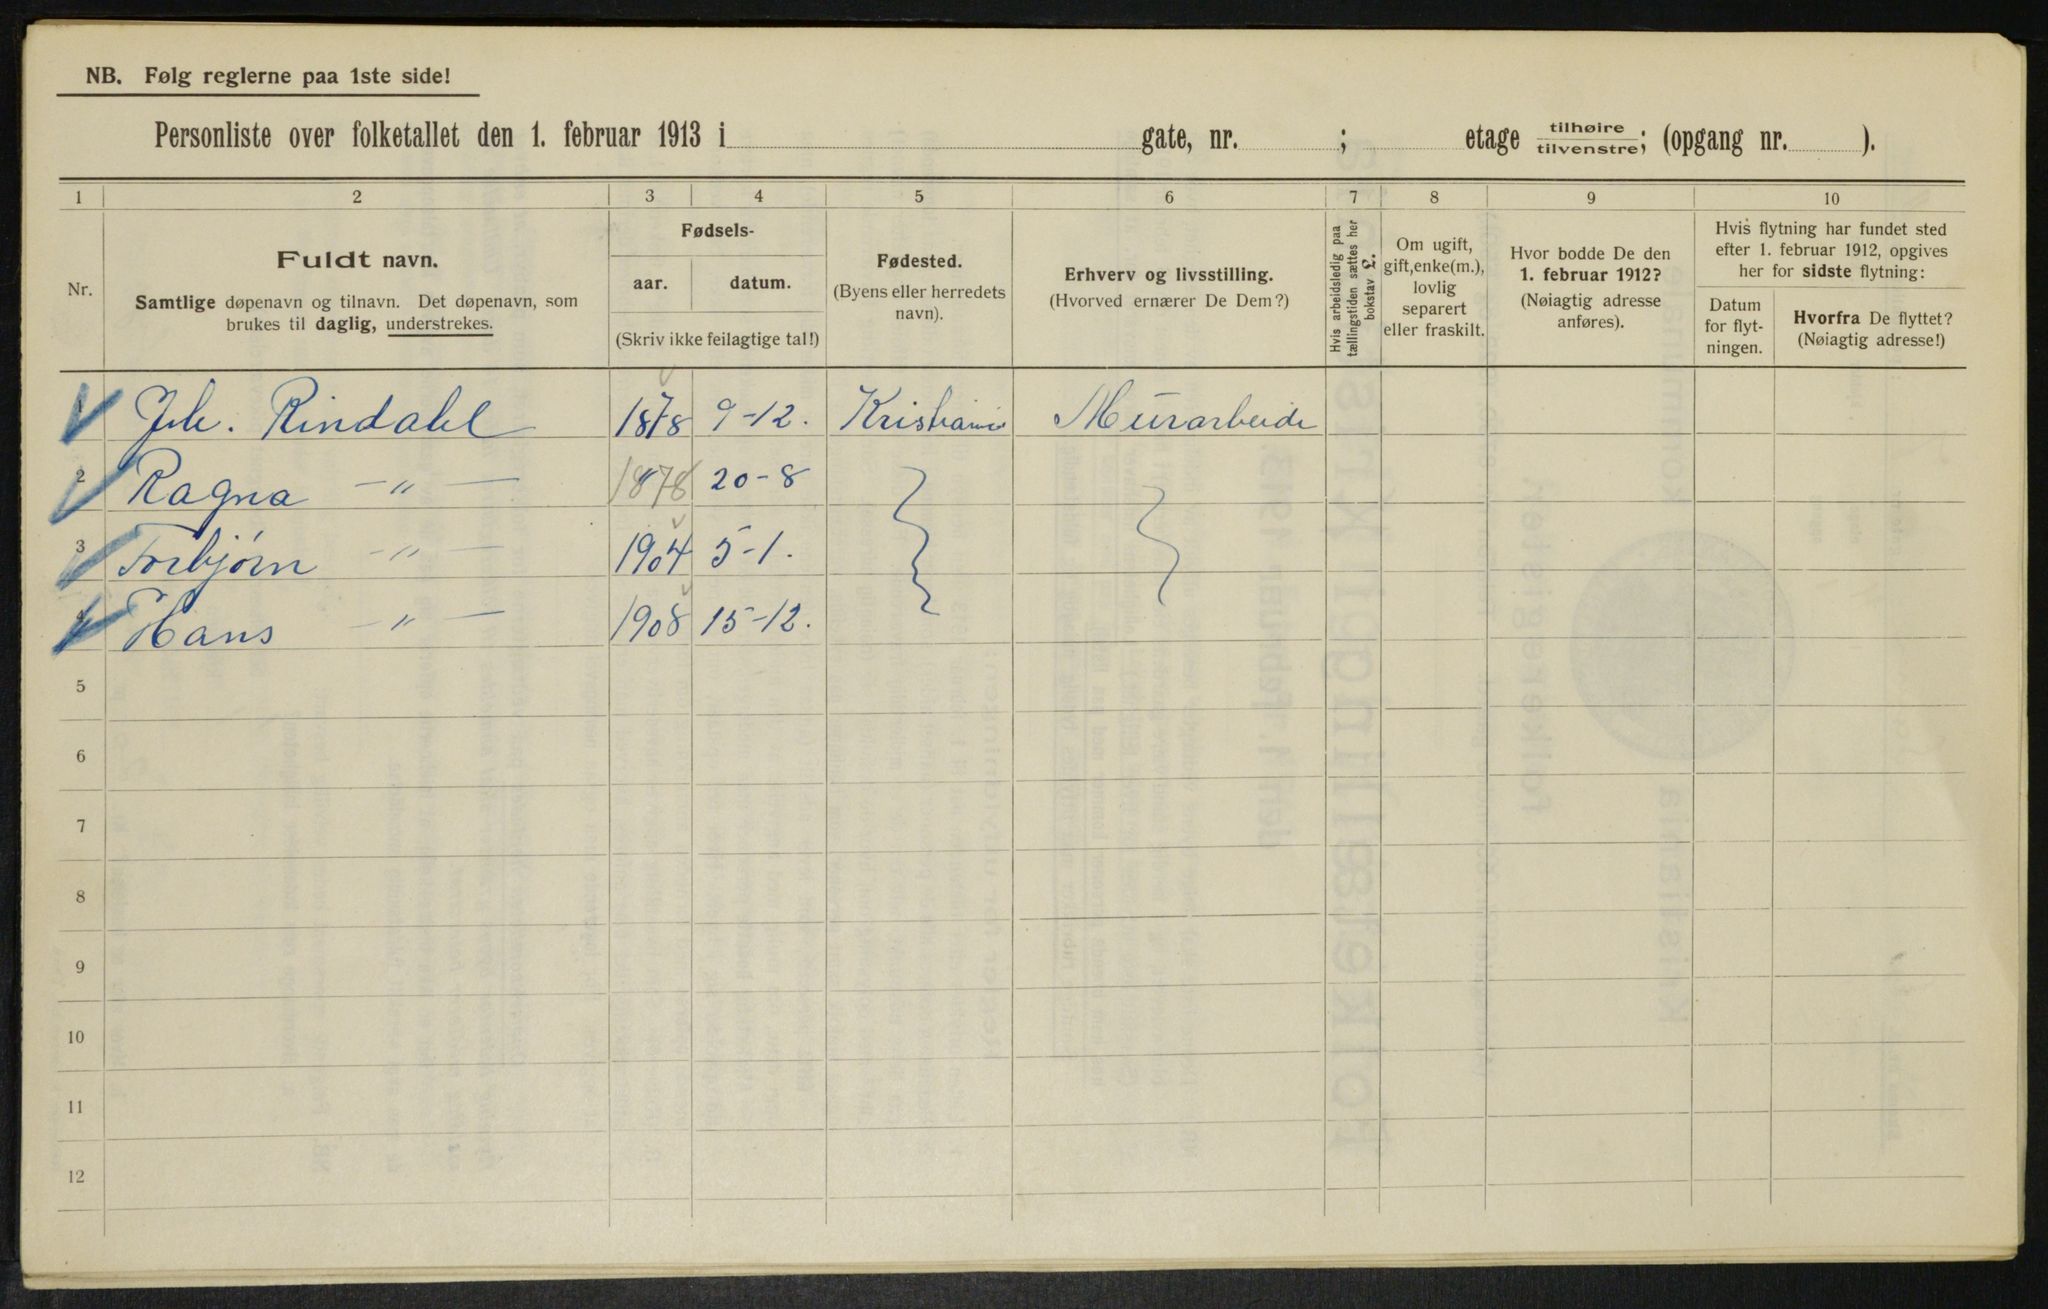 NB. Følg reglerne paa 1ste side!
Personliste over folketallet den 1. februar 1913 i gate, nr. ; etage tilhøire tilvenstre; (opgang nr. ).
1 2 3 4 5 6 7 8 9 10
Nr.
Fuldt navn.
Samtlige døpenavn og tilnavn. Det døpenavn, som
brukes til daglig, understrekes.
Fødsels-
aar. datum.
(Skriv ikke feilagtige tal!)
Fødested.
(Byens eller herredets
navn).
Erhverv og livsstilling.
(Hvorved ernærer De Dem?)
Hvis arbeidsledig paa
tællingstiden sættes her
bokstav L.
Om ugift,
gift, enke(m.),
lovlig
separert
eller fraskilt.
Hvor bodde De den
1. februar 1912?
(Nøiagtig adresse
anføres).
Hvis flytning har fundet sted
efter 1. februar 1912, opgives
her for sidste flytning:
Datum
for flyt-
ningen.
Hvorfra De flyttet?
(Nøiagtig adresse!)
1 Joh. Rindahl 1878 9-12. Kristiania Murarbeide
2 Ragna —„— 1878 20-8
3 Torbjørn —„— 1904 5-1.
4 Hans —„— 1908 15-12.
5
6
7
8
9
10
11
12